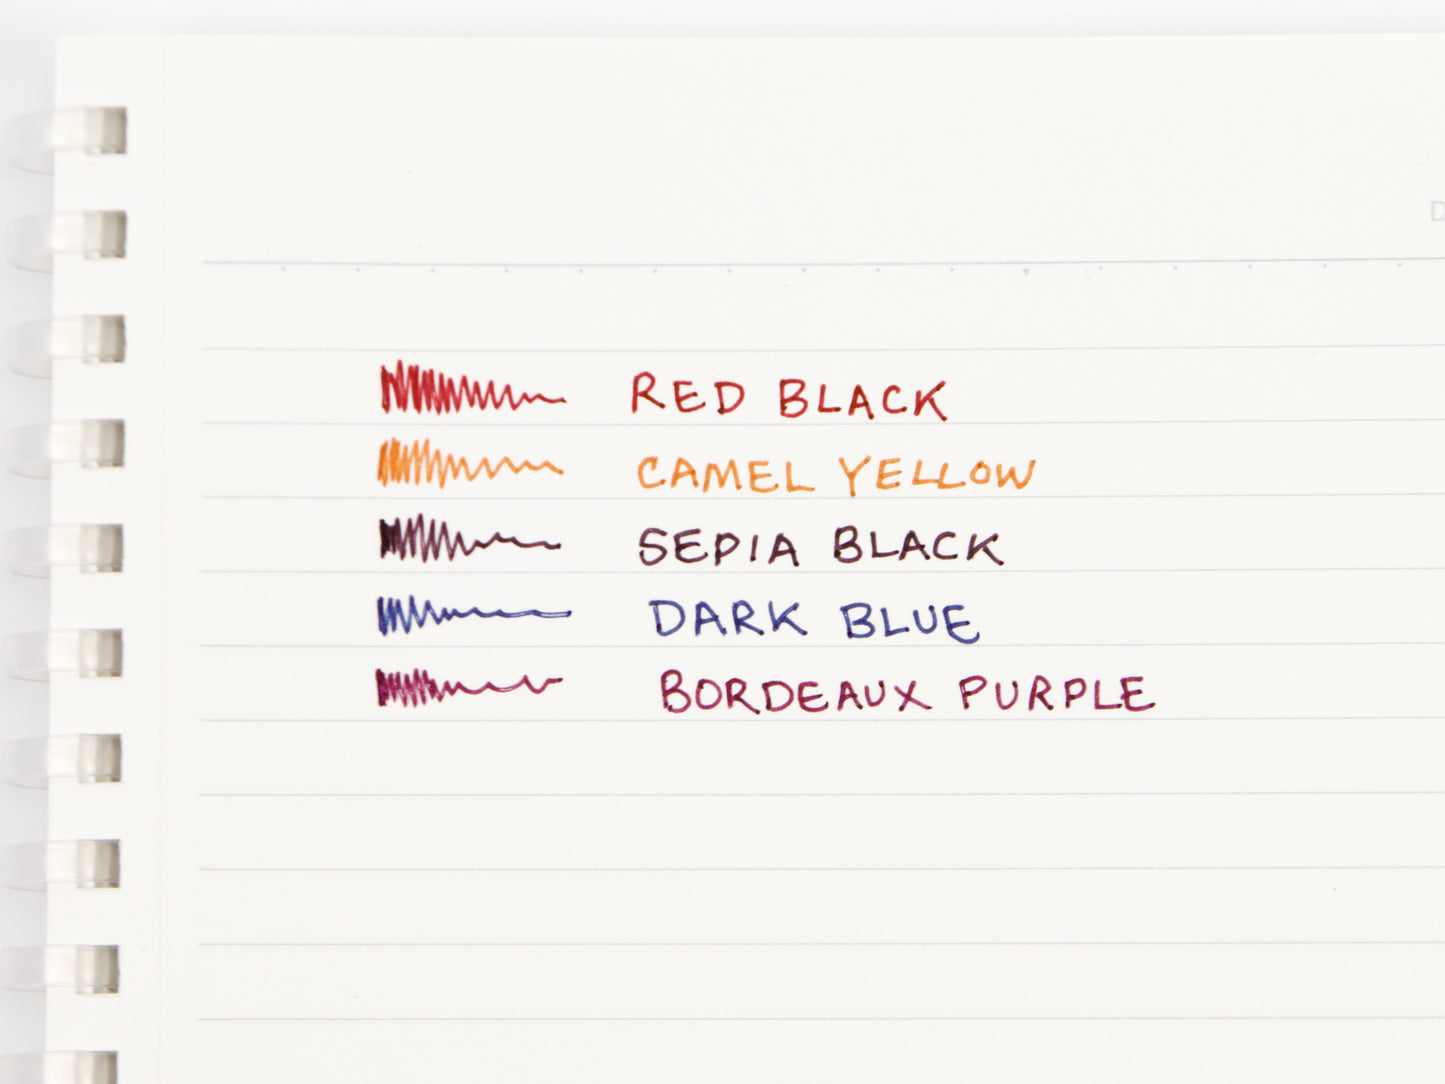 RED BLACK
CAMEL YELLOW
SEPIA BLACK
DARK BLUE
BORDEAUX PURPLE